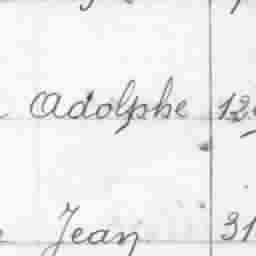 Adolphe 12
Jean 31